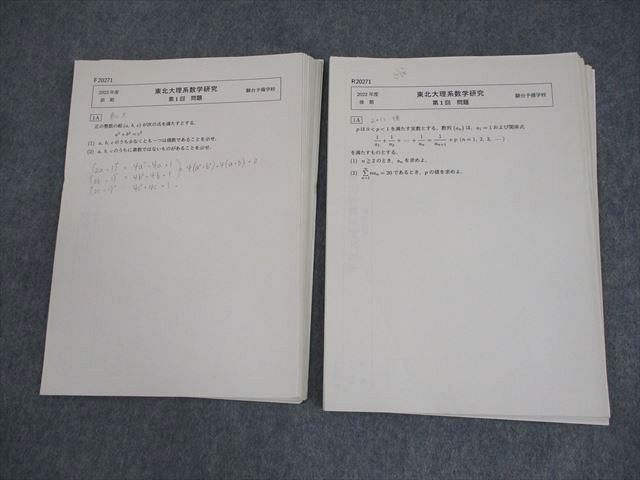 F20271
2022年度
前 期
東北大理系数学研究
第1回 問題
駿台予備学校
1A
正の整数の組 (a, b, c) が次の式を満たすとする.
a³ + b³ = c³
(1) a, b, c のうち少なくとも一つは偶数であることを示せ.
(2) a, b, c のうちに素数ではないものがあることを示せ.
R20271
2022年度
後 期
東北大理系数学研究
第1回 問題
駿台予備学校
1A
2011 後
p は 0 < p < 1 を満たす実数とする. 数列 {aₙ} は, a₁ = 1 および関係式
1/a₁ + 1/a₂ + ⋯ + 1/aₙ = 1/aₙ₊₁ × p (n = 1, 2, 3, ⋯)
を満たすものとする.
(1) n ≧ 2 のとき, aₙ を求めよ.
(2) ∑ naₙ = 20 であるとき, p の値を求めよ.